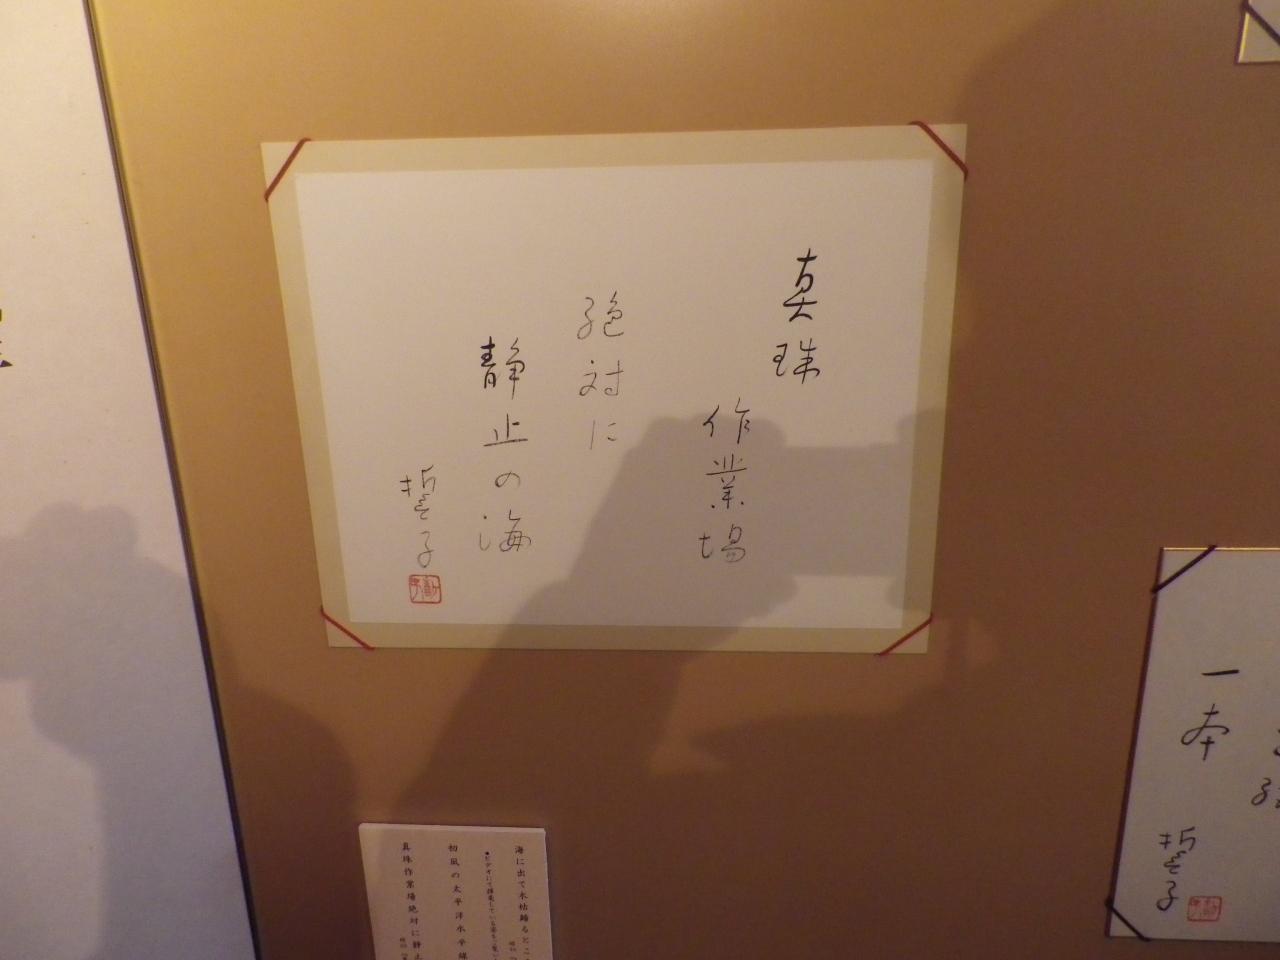 真珠
作業場
絶対に
静止の海
誓子
一本
誓子
海に出て木枯帰るところ
初凪の太平洋水平線
真珠作業場絶対に静止